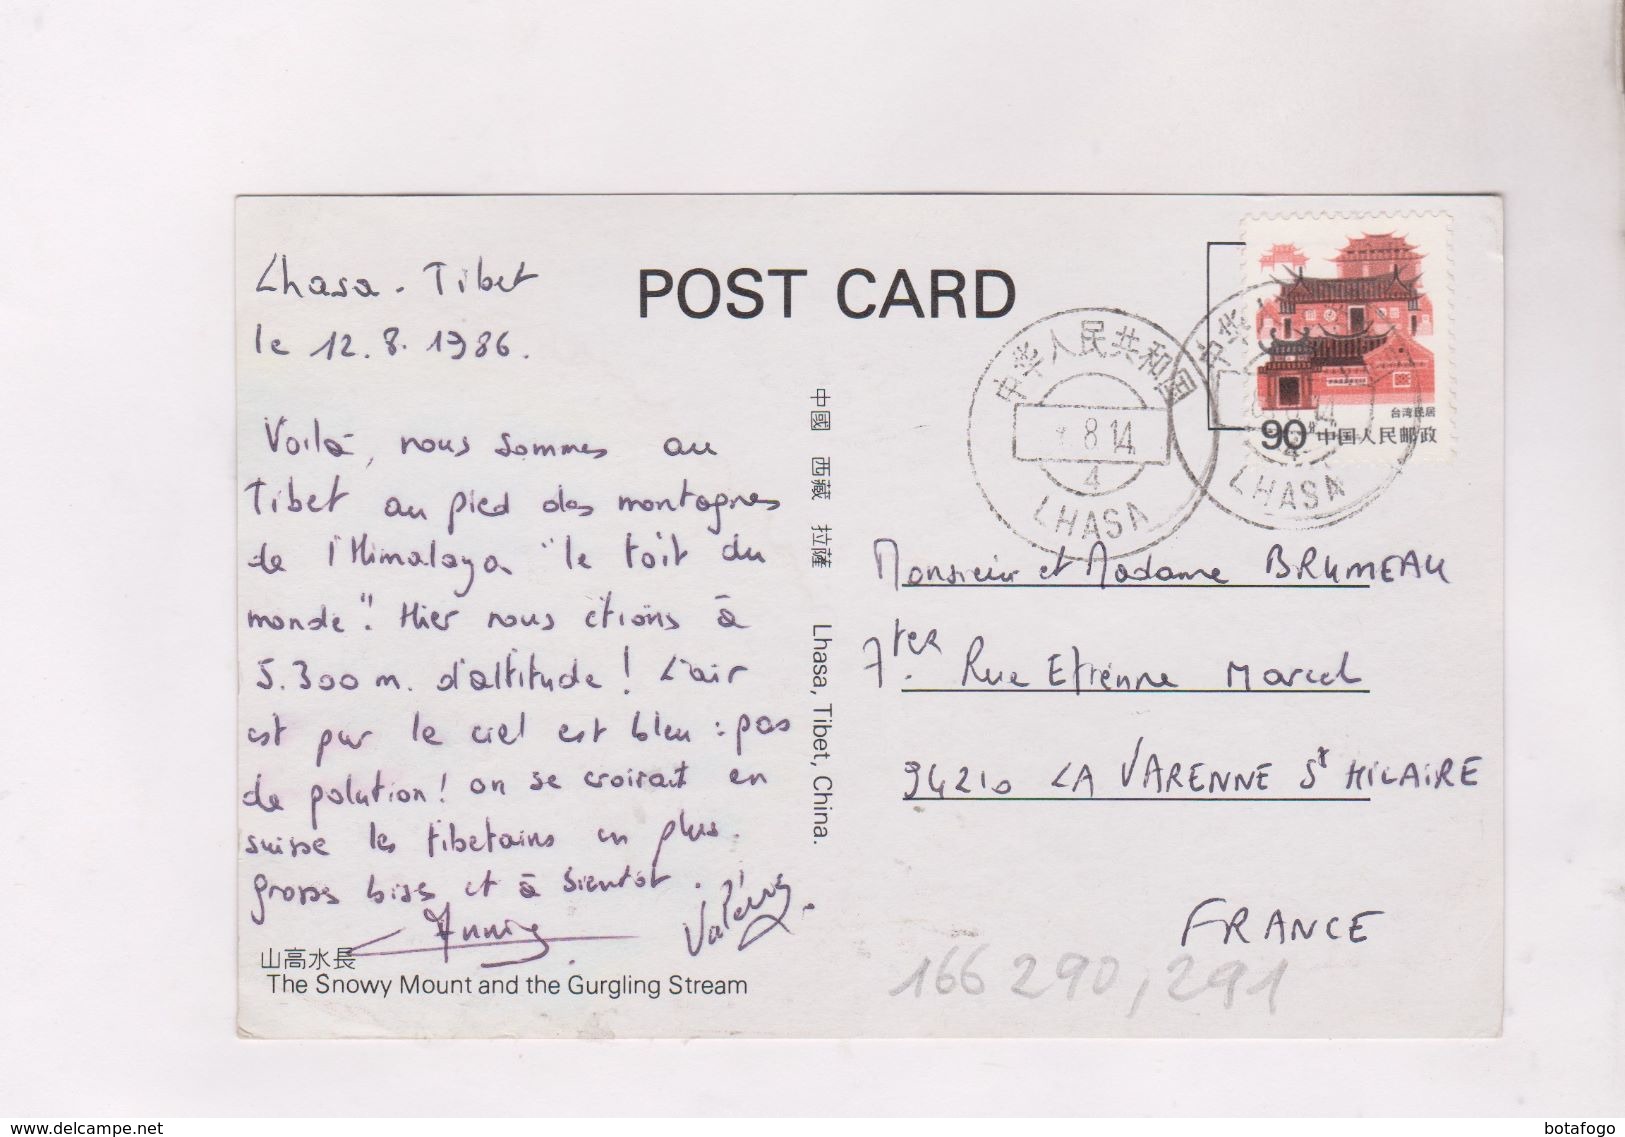 Lhasa - Tibet
le 12.8.1986.
Voilà, nous sommes au
Tibet au pied des montagnes
de l'Himalaya "le toit du
monde". Hier nous étions à
5.300 m. d'altitude! L'air
est pur le ciel est bleu : pas
de polution! on se croirait en
suisse les tibetains en plus.
grosses bises et à bientôt.
Annie
Valérie.
山高水長
The Snowy Mount and the Gurgling Stream
POST CARD
中國 西藏 拉薩 Lhasa, Tibet, China.
中华人民共和国
8.14
4
LHASA
中华
14
4
LHASA
台湾民居
90分 中国人民邮政
Monsieur et Madame BRUMEAU
7ter. Rue Etienne Marcel
94210 LA VARENNE St HILAIRE
FRANCE
166 290, 291
www.delcampe.net
botafogo